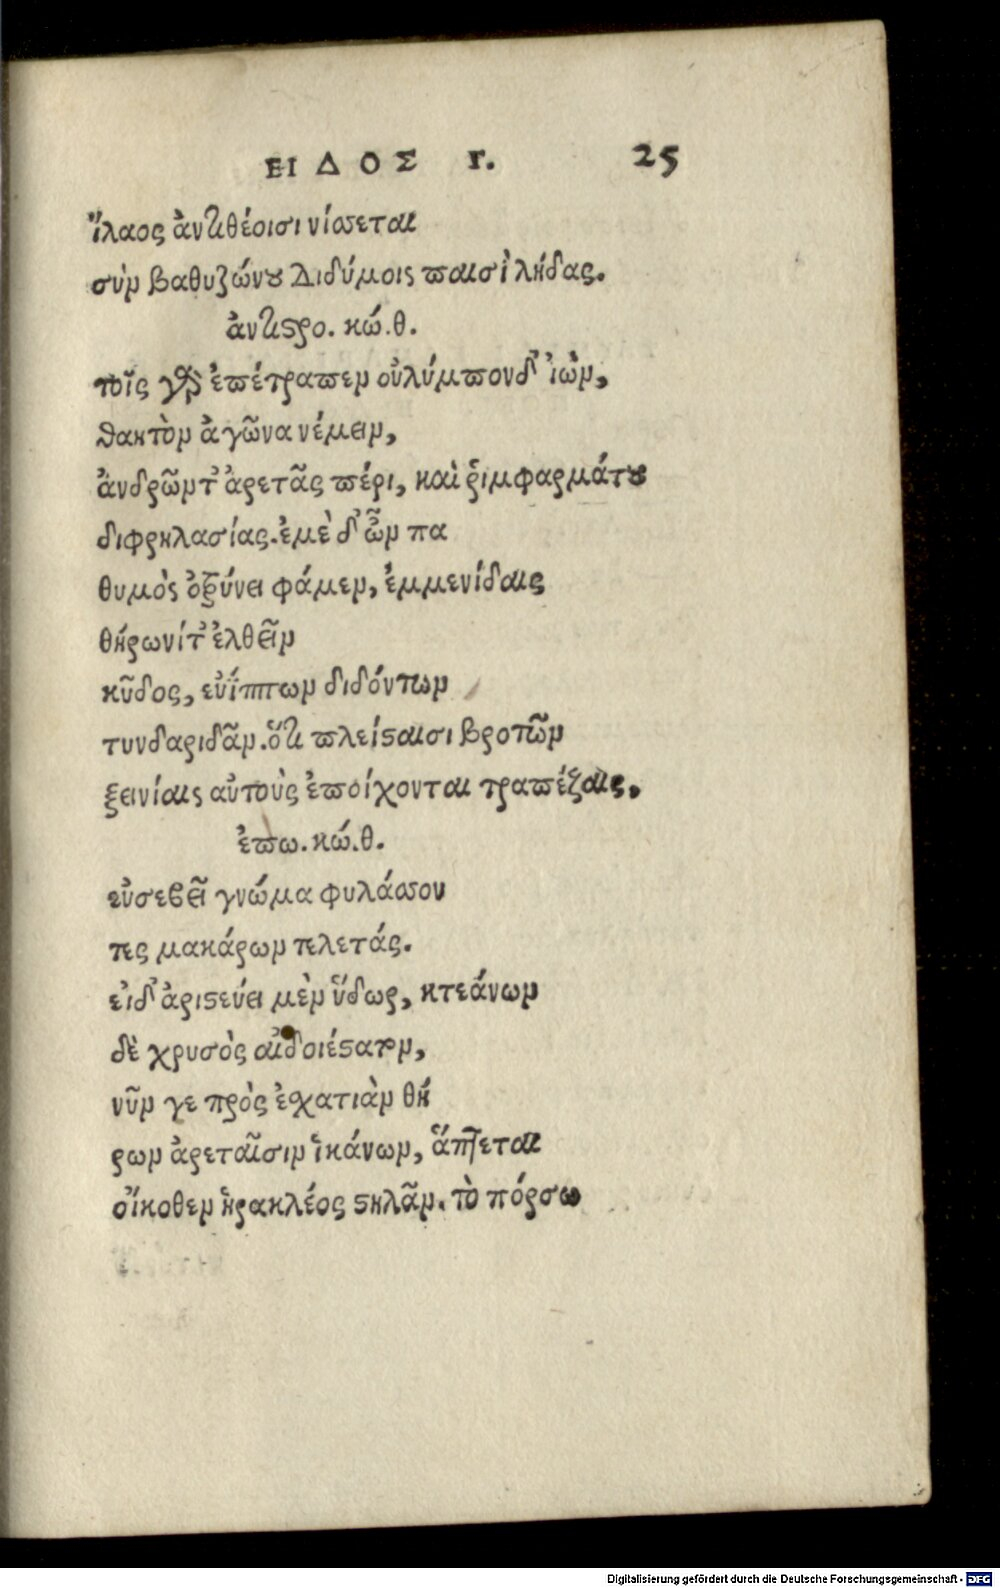 ΕΙΔΟΣ Γ. 25
ἵλαος ἀντιθέοισι νίσσεται
σὺν βαθυζώνου Διδύμοις παισὶ λήδας.
ἀντιστρο. κώ. θ.
τοῖς γὰρ ἐπέτραπεν οὐλύμπονδ' ἰὼν,
θακτὸν ἀγῶνα νέμειν,
ἀνδρῶντ' ἀρετᾶς πέρι, καὶ ῥιμφαρμάτου
διφρηλασίας. ἐμὲ δ' ὦν πα
θυμὸς ὀτρύνει φάμεν, ἐμμενίδαις
θήρωνίτ' ἐλθεῖν
κῦδος, εὐΐππων διδόντων
τυνδαριδᾶν. ὅτι πλείσταισι βροτῶν
ξεινίαις αὐτοὺς ἐποίχονται τραπέζαις,
ἐπω. κώ. θ.
εὐσεβεῖ γνώμα φυλάσσον
τες μακάρων τελετάς.
εἰδ' ἀριστεύει μὲν ὕδωρ, κτεάνων
δὲ χρυσὸς αἰδοιέστατον,
νῦν γε πρὸς ἐσχατιὰν θή
ρων ἀρεταῖσιν ἱκάνων, ἅπτεται
οἴκοθεν ἡρακλέος στηλᾶν. τὸ πόρσω
Digitalisierung gefördert durch die Deutsche Forschungsgemeinschaft - DFG